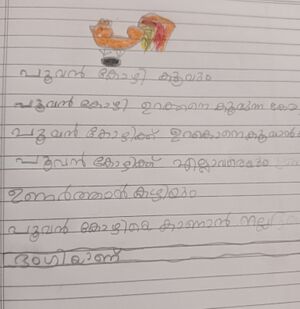 പൂവൻ കോഴി കൂവും
പൂവൻ കോഴി ഉറക്കനെ കൂവുന്ന
പൂവൻ കോഴിക്ക് ഉറക്കനെ
പൂവൻ കോഴിക്ക് എല്ലാവരെയും
ഉണർത്താൻ കഴിയും
പൂവൻ കോഴിയെ കാണാൻ നല്ല
ഭംഗിയാണ്